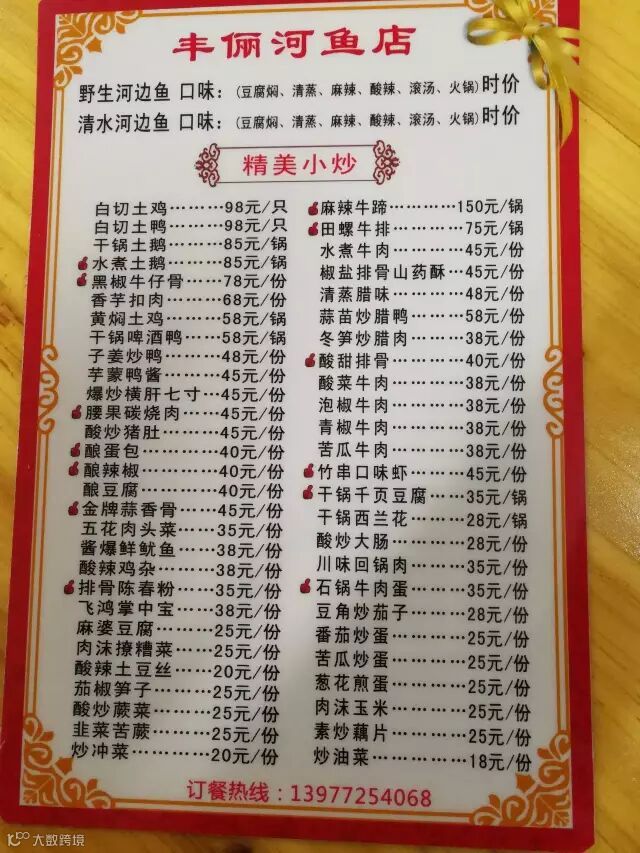 丰俪河鱼店
野生河边鱼 口味：(豆腐焖、清蒸、麻辣、酸辣、滚汤、火锅)时价
清水河边鱼 口味：(豆腐焖、清蒸、麻辣、酸辣、滚汤、火锅)时价
精美小炒
白切土鸡………98元/只
白切土鸭………98元/只
干锅土鹅………85元/锅
水煮土鹅………85元/锅
黑椒牛仔骨……78元/份
香芋扣肉………68元/份
黄焖土鸡………58元/锅
干锅啤酒鸭……58元/锅
子姜炒鸭………48元/份
芋蒙鸭酱………45元/份
爆炒横肝七寸…45元/份
腰果碳烧肉……45元/份
酸炒猪肚………45元/份
酿蛋包…………40元/份
酿辣椒…………40元/份
酿豆腐…………40元/份
金牌蒜香骨……45元/份
五花肉头菜……35元/份
酱爆鲜鱿鱼……38元/份
酸辣鸡杂………38元/份
排骨陈春粉……35元/份
飞鸿掌中宝……38元/份
麻婆豆腐………25元/份
肉沫撩糟菜……25元/份
酸辣土豆丝……20元/份
茄椒笋子………25元/份
酸炒蕨菜………25元/份
韭菜苦蕨………25元/份
炒冲菜…………20元/份
麻辣牛蹄…………150元/锅
田螺牛排…………75元/锅
水煮牛肉…………45元/份
椒盐排骨山药酥…45元/份
清蒸腊味…………48元/份
蒜苗炒腊鸭………58元/份
冬笋炒腊肉………38元/份
酸甜排骨…………40元/份
酸菜牛肉…………38元/份
泡椒牛肉…………38元/份
青椒牛肉…………38元/份
苦瓜牛肉…………38元/份
竹串口味虾………45元/份
干锅千页豆腐……35元/锅
干锅西兰花………28元/锅
酸炒大肠…………38元/份
川味回锅肉………35元/份
石锅牛肉蛋………35元/份
豆角炒茄子………28元/份
番茄炒蛋…………25元/份
苦瓜炒蛋…………25元/份
葱花煎蛋…………25元/份
肉沫玉米…………25元/份
素炒藕片…………25元/份
炒油菜……………18元/份
订餐热线：13977254068
大数跨境